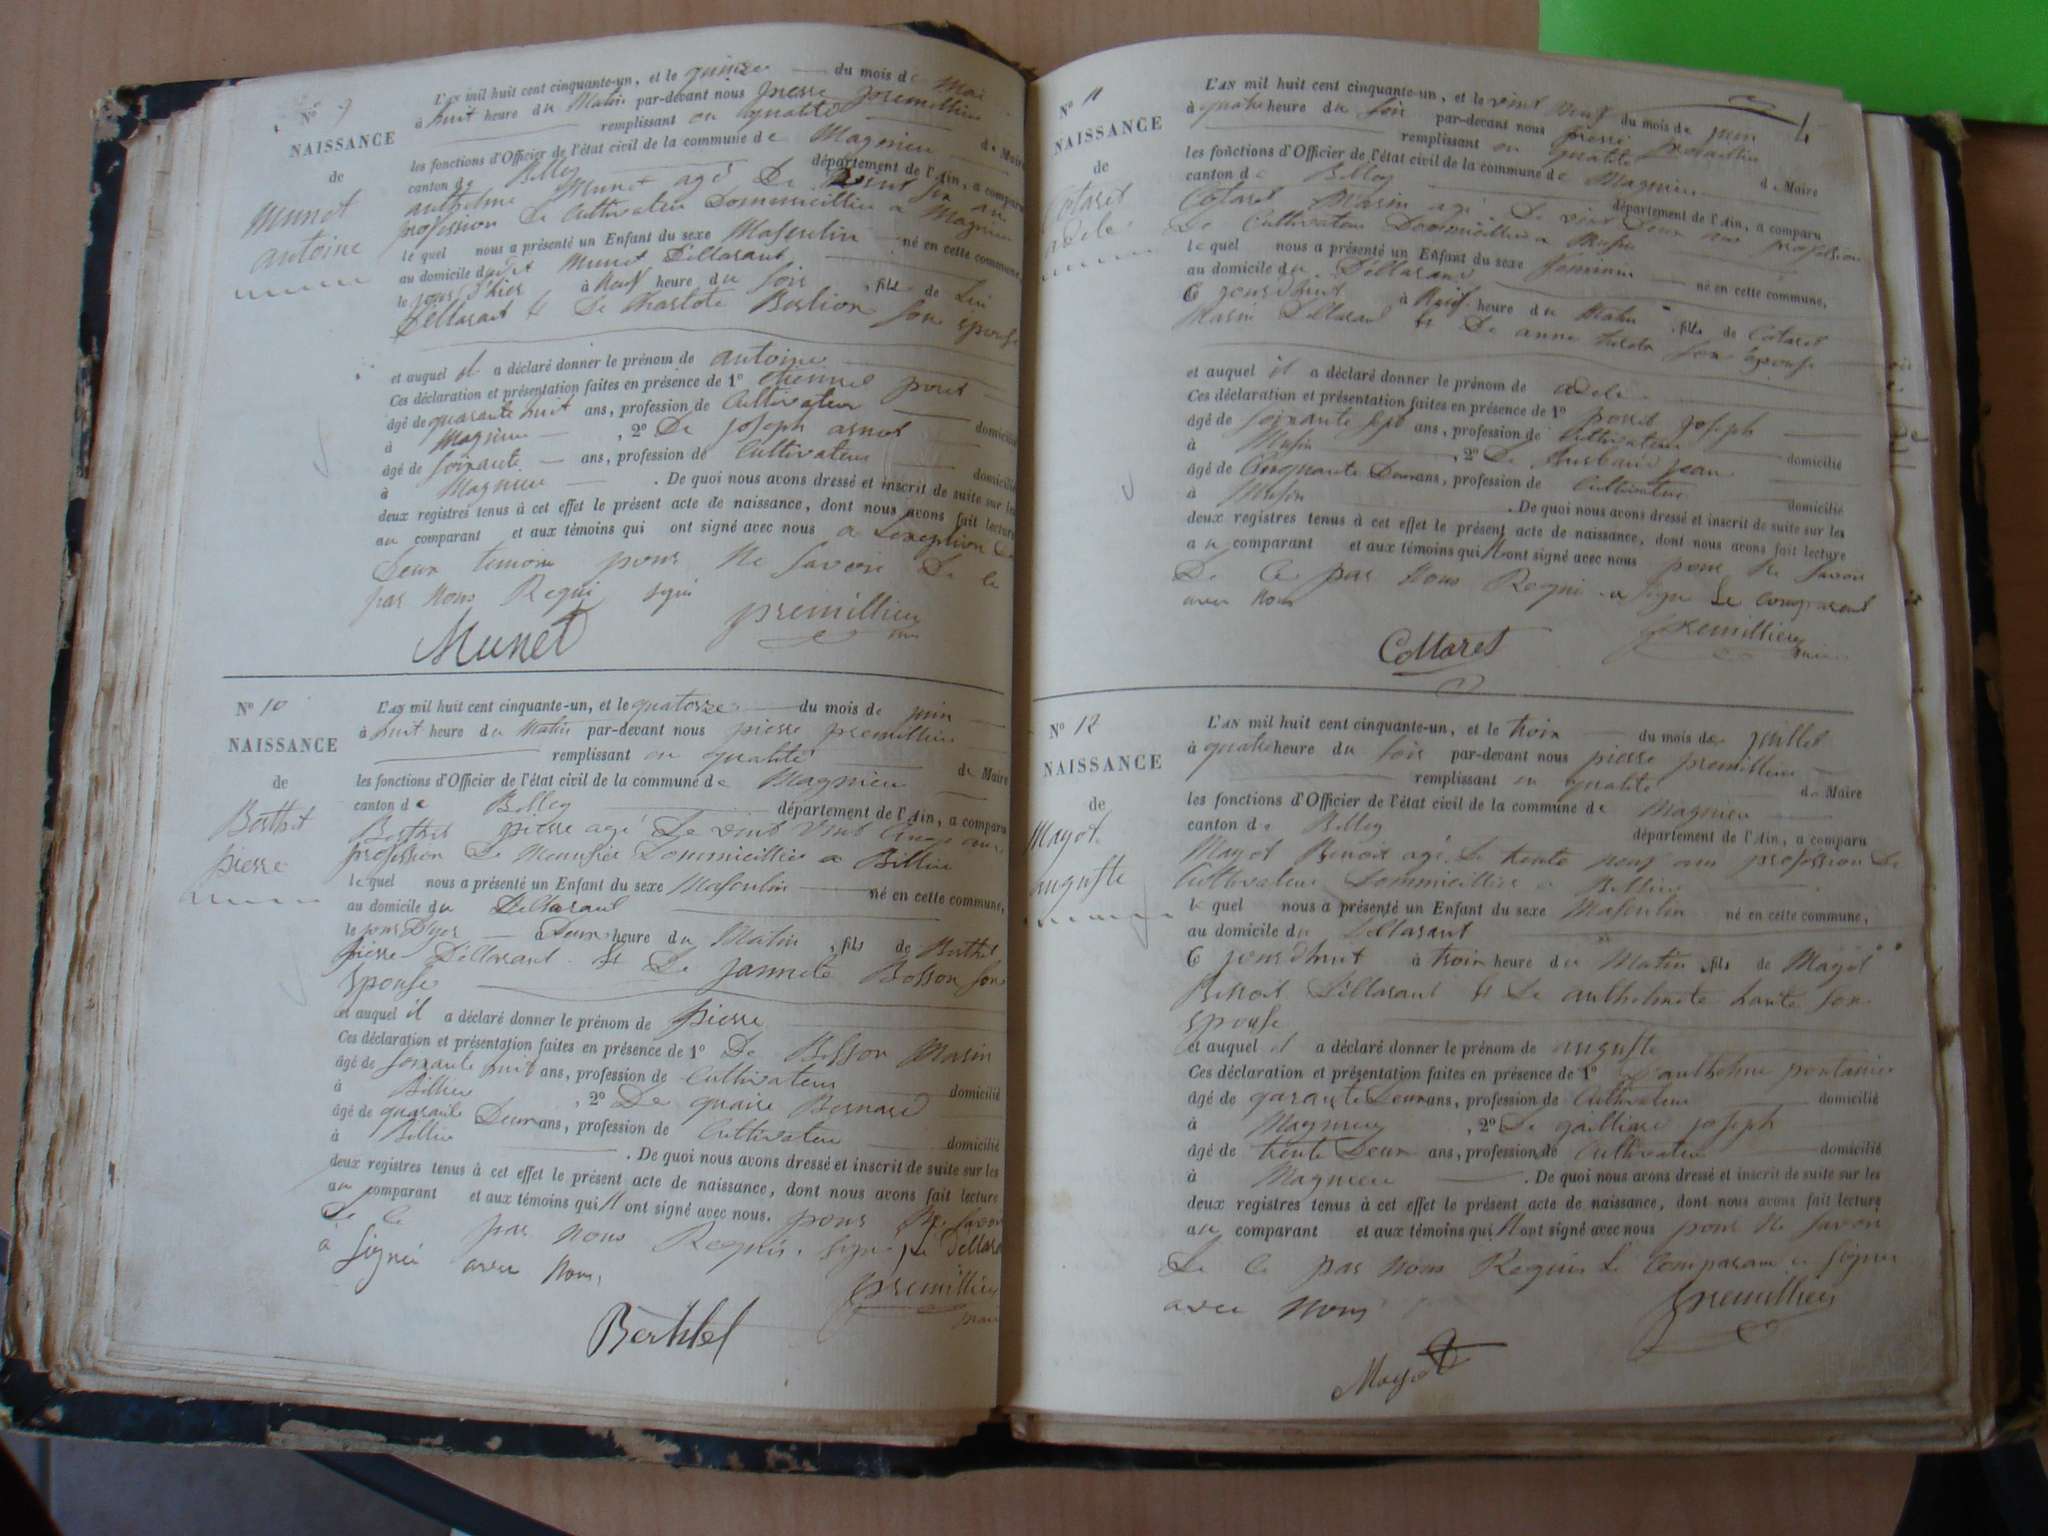 N° 9
NAISSANCE
de
Munet
antoine
L'AN mil huit cent cinquante-un, et le quinze du mois de Mai
à huit heure du Matin par-devant nous pierre premillieu
remplissant en qualité de Maire
les fonctions d'Officier de l'état civil de la commune de Magnieu
canton de Belley département de l'Ain, a comparu
anthelme Munet agé De an
profession De Cultivateur Dommicillier a Magnieu
lequel nous a présenté un Enfant du sexe Masculin né en cette commune,
au domicile dudit Munet Déllarant
le jour d'hier à Neuf heure du soir, fils de Lui
Déllarant & De Charlote Berlion son épouse
et auquel il a déclaré donner le prénom de antoine
Ces déclaration et présentation faites en présence de 1° étiennes
âgé de quarante huit ans, profession de Cultivateur domicilié
à Magnieu, 2° De joseph
âgé de soixante ans, profession de Cultivateur domicilié
à Magnieu. De quoi nous avons dressé et inscrit de suite sur les
deux registres tenus à cet effet le présent acte de naissance, dont nous avons fait lecture
au comparant et aux témoins qui ont signé avec nous a Lexeption De
Deux temoins pour Ne savoir De Ce
par Nous Requi signé
Munet premillieu
N° 10
NAISSANCE
de
Berthet
pierre
L'AN mil huit cent cinquante-un, et le quatorze du mois de juin
à huit heure du Matin par-devant nous pierre premillieu
remplissant en qualité de Maire
les fonctions d'Officier de l'état civil de la commune de Magnieu
canton de Belley département de l'Ain, a comparu
Berthet pierre agé De vint Cinq ans
profession De Meunsier Dommicillier a Billieu
lequel nous a présenté un Enfant du sexe Masculin né en cette commune,
au domicile du Déllarant
le jour D'yer à Deux heure du Matin, fils de Berthet
pierre Déllarant & De jannete Bosson son
Epouse
et auquel il a déclaré donner le prénom de pierre
Ces déclaration et présentation faites en présence de 1° De Marin
âgé de soixante huit ans, profession de Cultivateur domicilié
à Billieu, 2° De quaire Bernard
âgé de quarante Deux ans, profession de Cultivateur domicilié
à Billieu. De quoi nous avons dressé et inscrit de suite sur les
deux registres tenus à cet effet le présent acte de naissance, dont nous avons fait lecture
au comparant et aux témoins qui N ont signé avec nous. pour Ne savoir
De Ce par Nous Requis. signé Le Déllarant
a Signée avec Nous,
Berthlet premillieu
maire
4
N° 11
NAISSANCE
de
Cotaret
adele
L'AN mil huit cent cinquante-un, et le vint Neuf du mois de juin
à quatre heure du soir par-devant nous pierre premillieu
remplissant en qualité de Maire
les fonctions d'Officier de l'état civil de la commune de Magnieu
canton de Belley département de l'Ain, a comparu
Cotaret Marin agé De vint Deux ans profession
De Cultivateur Dommicillier a Musin
lequel nous a présenté un Enfant du sexe feminin né en cette commune,
au domicile du Déllarant
Ce jourdhui à heure du Matin, fille de Cotaret
Marin Déllarant & De anne son épouse
et auquel il a déclaré donner le prénom de adele
Ces déclaration et présentation faites en présence de 1° joseph
âgé de soixante sept ans, profession de Cultivateur domicilié
à Musin, 2° De jean
âgé de Cinquante Deux ans, profession de Cultivateur domicilié
à Musin. De quoi nous avons dressé et inscrit de suite sur les
deux registres tenus à cet effet le présent acte de naissance, dont nous avons fait lecture
au comparant et aux témoins qui N ont signé avec nous pour Ne savoir
De Ce par Nous Requi a signé Le comparant
avec Nous
Cottaret premillieu
maire
N° 12
NAISSANCE
de
Mayot
auguste
L'AN mil huit cent cinquante-un, et le troix du mois de juillet
à quatre heure du soir par-devant nous pierre premillieu
remplissant en qualité de Maire
les fonctions d'Officier de l'état civil de la commune de Magnieu
canton de Belley département de l'Ain, a comparu
Mayot Benoit agé De trente neuf ans profession De
Cultivateur Dommicillier a Billieu
lequel nous a présenté un Enfant du sexe Masculin né en cette commune,
au domicile du Déllarant
Ce jourdhuit à troix heure du Matin, fils de Mayot
Benoit Déllarant & De anthelmete son
Epouse
et auquel il a déclaré donner le prénom de auguste
Ces déclaration et présentation faites en présence de 1° D'anthelme pontanier
âgé de garante Deux ans, profession de Cultivateur domicilié
à Magnieu, 2° De gailliard joseph
âgé de trente Deux ans, profession de Cultivateur domicilié
à Magnieu. De quoi nous avons dressé et inscrit de suite sur les
deux registres tenus à cet effet le présent acte de naissance, dont nous avons fait lecture
au comparant et aux témoins qui N ont signé avec nous pour Ne savoir
De Ce par Nous Requis Le Comparant a signer
avec Nous
Mayot premillieu